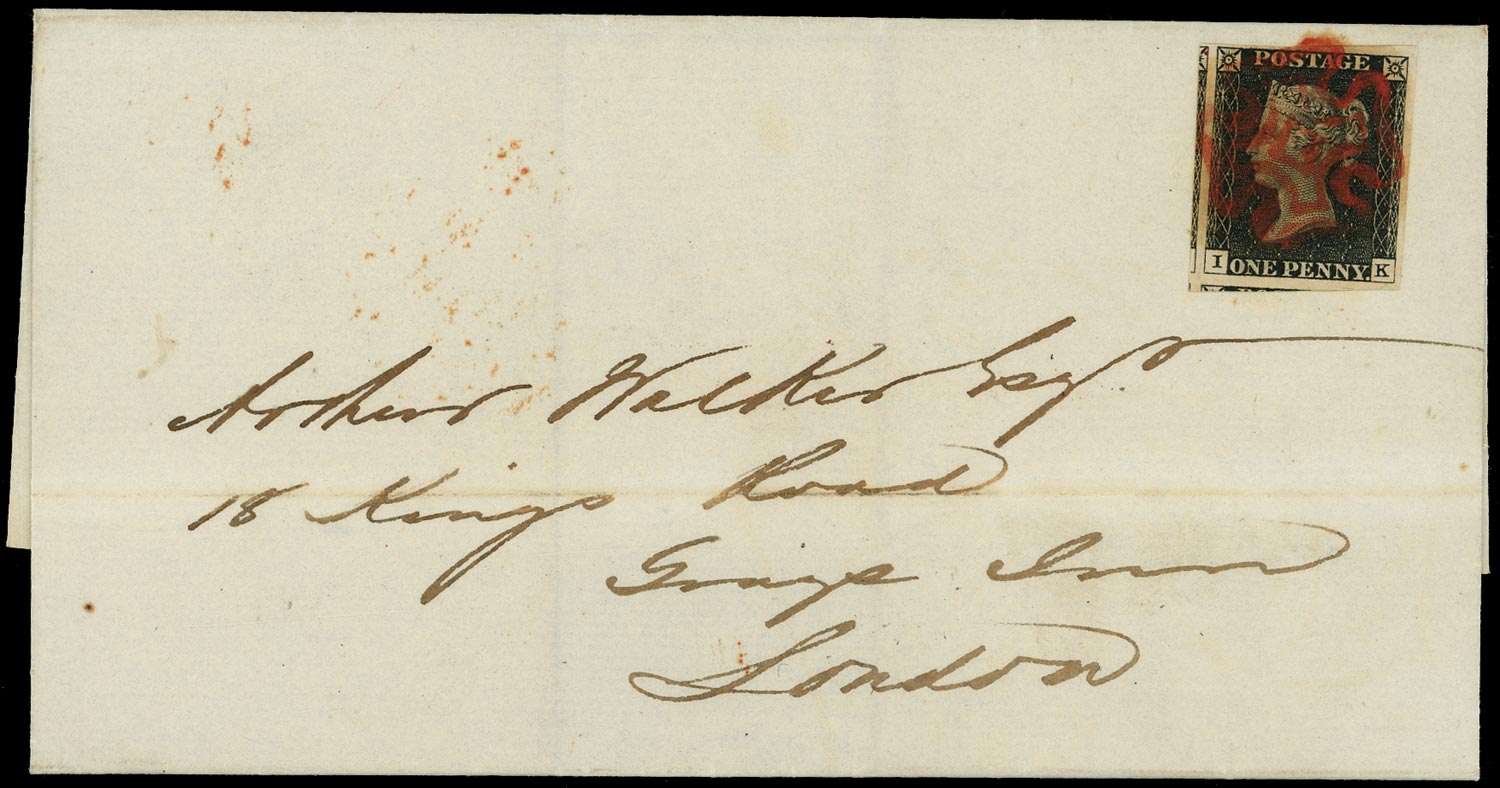 POSTAGE
I ONE PENNY. K
Arthur Walker Esqr
18 Kings Road
Grays Inn
London